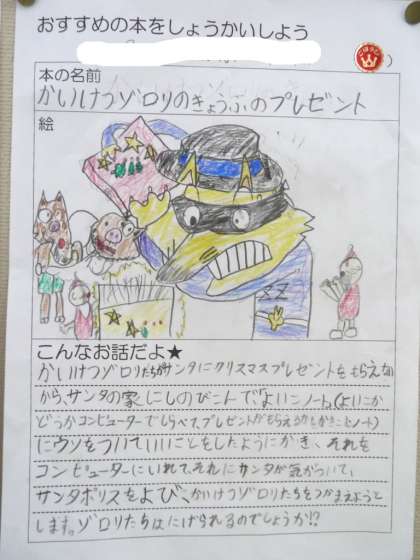 おすすめの本をしょうかいしよう
本の名前
かいけつゾロリのきょうふのプレゼント
絵
こんなお話だよ★
かいけつゾロリたちがサンタにクリスマスプレゼントをもらえない
から、サンタの家にしのびこんで、「よいこノート」(よいこか
どうかコンピューターでしらべて、プレゼントがもらえるか
にウソをついていいことをしたようにかき、それを
コンピューターにいれて、それにサンタが気がついて、
サンタポリスをよび、かいけつゾロリたちをつかまえようと
します。ゾロリたちはにげられるのでしょうか!?